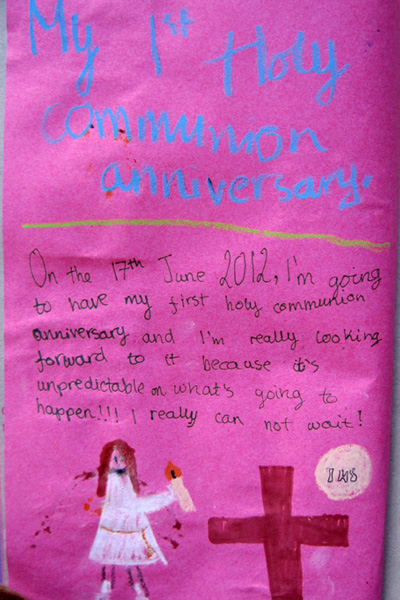 My 1st Holy
communion
anniversary.
On the 17th June 2012, I'm going
to have my first holy communion
anniversary and I'm really looking
forward to it because it's
unpredictable on what's going to
happen!!! I really can not wait!
IHS